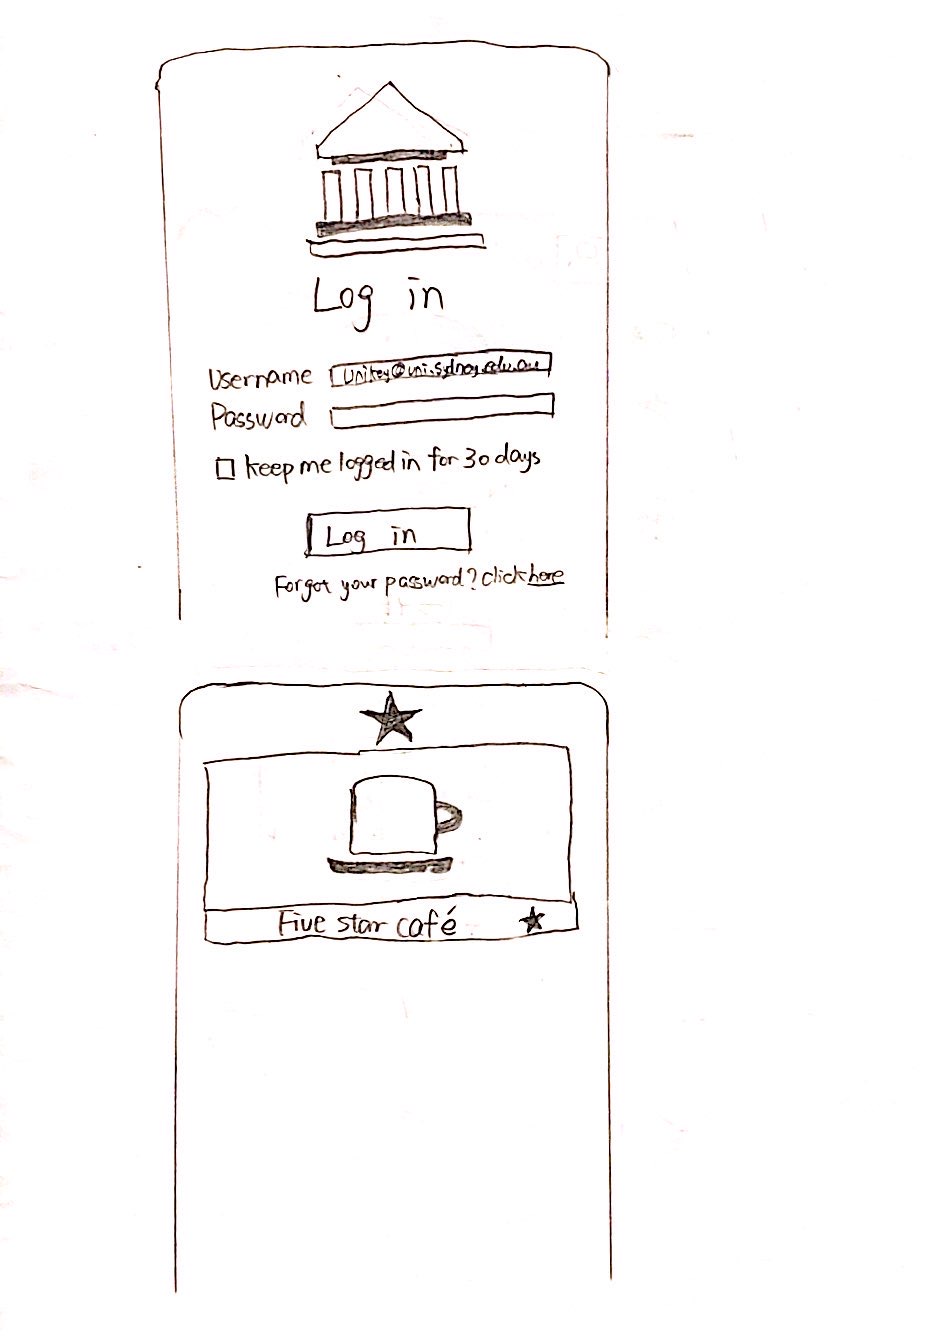 Log in
Username unikey@uni.sydney.edu.au
Password
keep me logged in for 30 days
Log in
Forgot your password? click here
Five star café